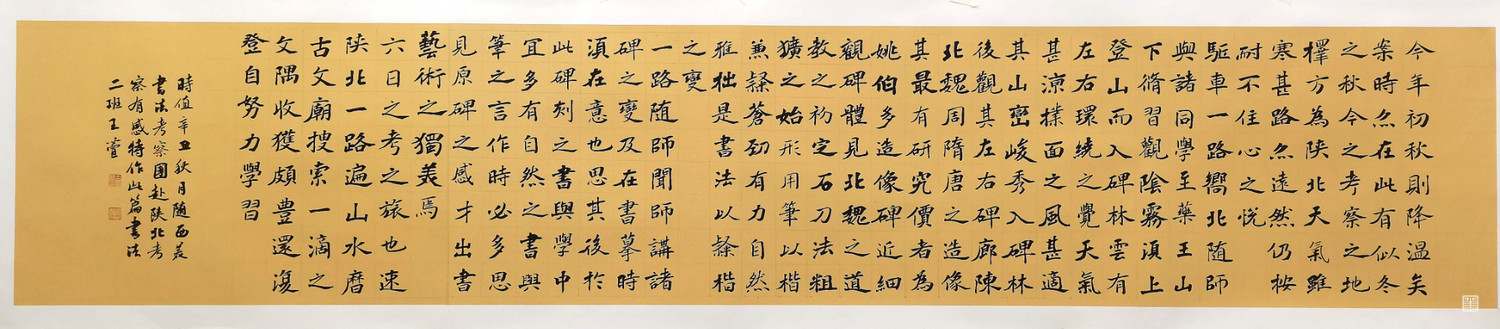 今年初秋則降溫矣
案時炁在此有似冬
之秋今之考察之地
擇方為陝北天氣雖
寒甚路炁遠然仍桉
耐不住心之悦
驅車一路嚮北随師
與諸同學至藥王山
下脩習觀陰霧湏上
登山而入碑林雲有
左右環繞之覺天氣
甚涼撲面之風甚適
其山巒峻秀入碑林
後觀其左右碑廊陳
北魏北周隋唐之造像
其最有研究價者為
姚伯多造像碑近細
觀碑體見北魏之道
教之礿定石刀法粗
獷之始形用筆以楷
兼隸蒼劲有力自然
雅拙是書法以隸楷
之變
一路随師聞師講諸
碑之變及在書摹時
湏在意也思其後於
此碑刻之書與學中
宜多有自然之書與
筆之言作時必多思
見原碑之感才出書
藝術之獨美焉
六日之考之旅也速
陝北一路遍山水曆
古文廟搜索一滴之
文隅收獲頗豊還復
登自努力學習
時值辛丑秋月随西美
書法考察團赴陝北考
察有感特作此篇書法
二班王萱